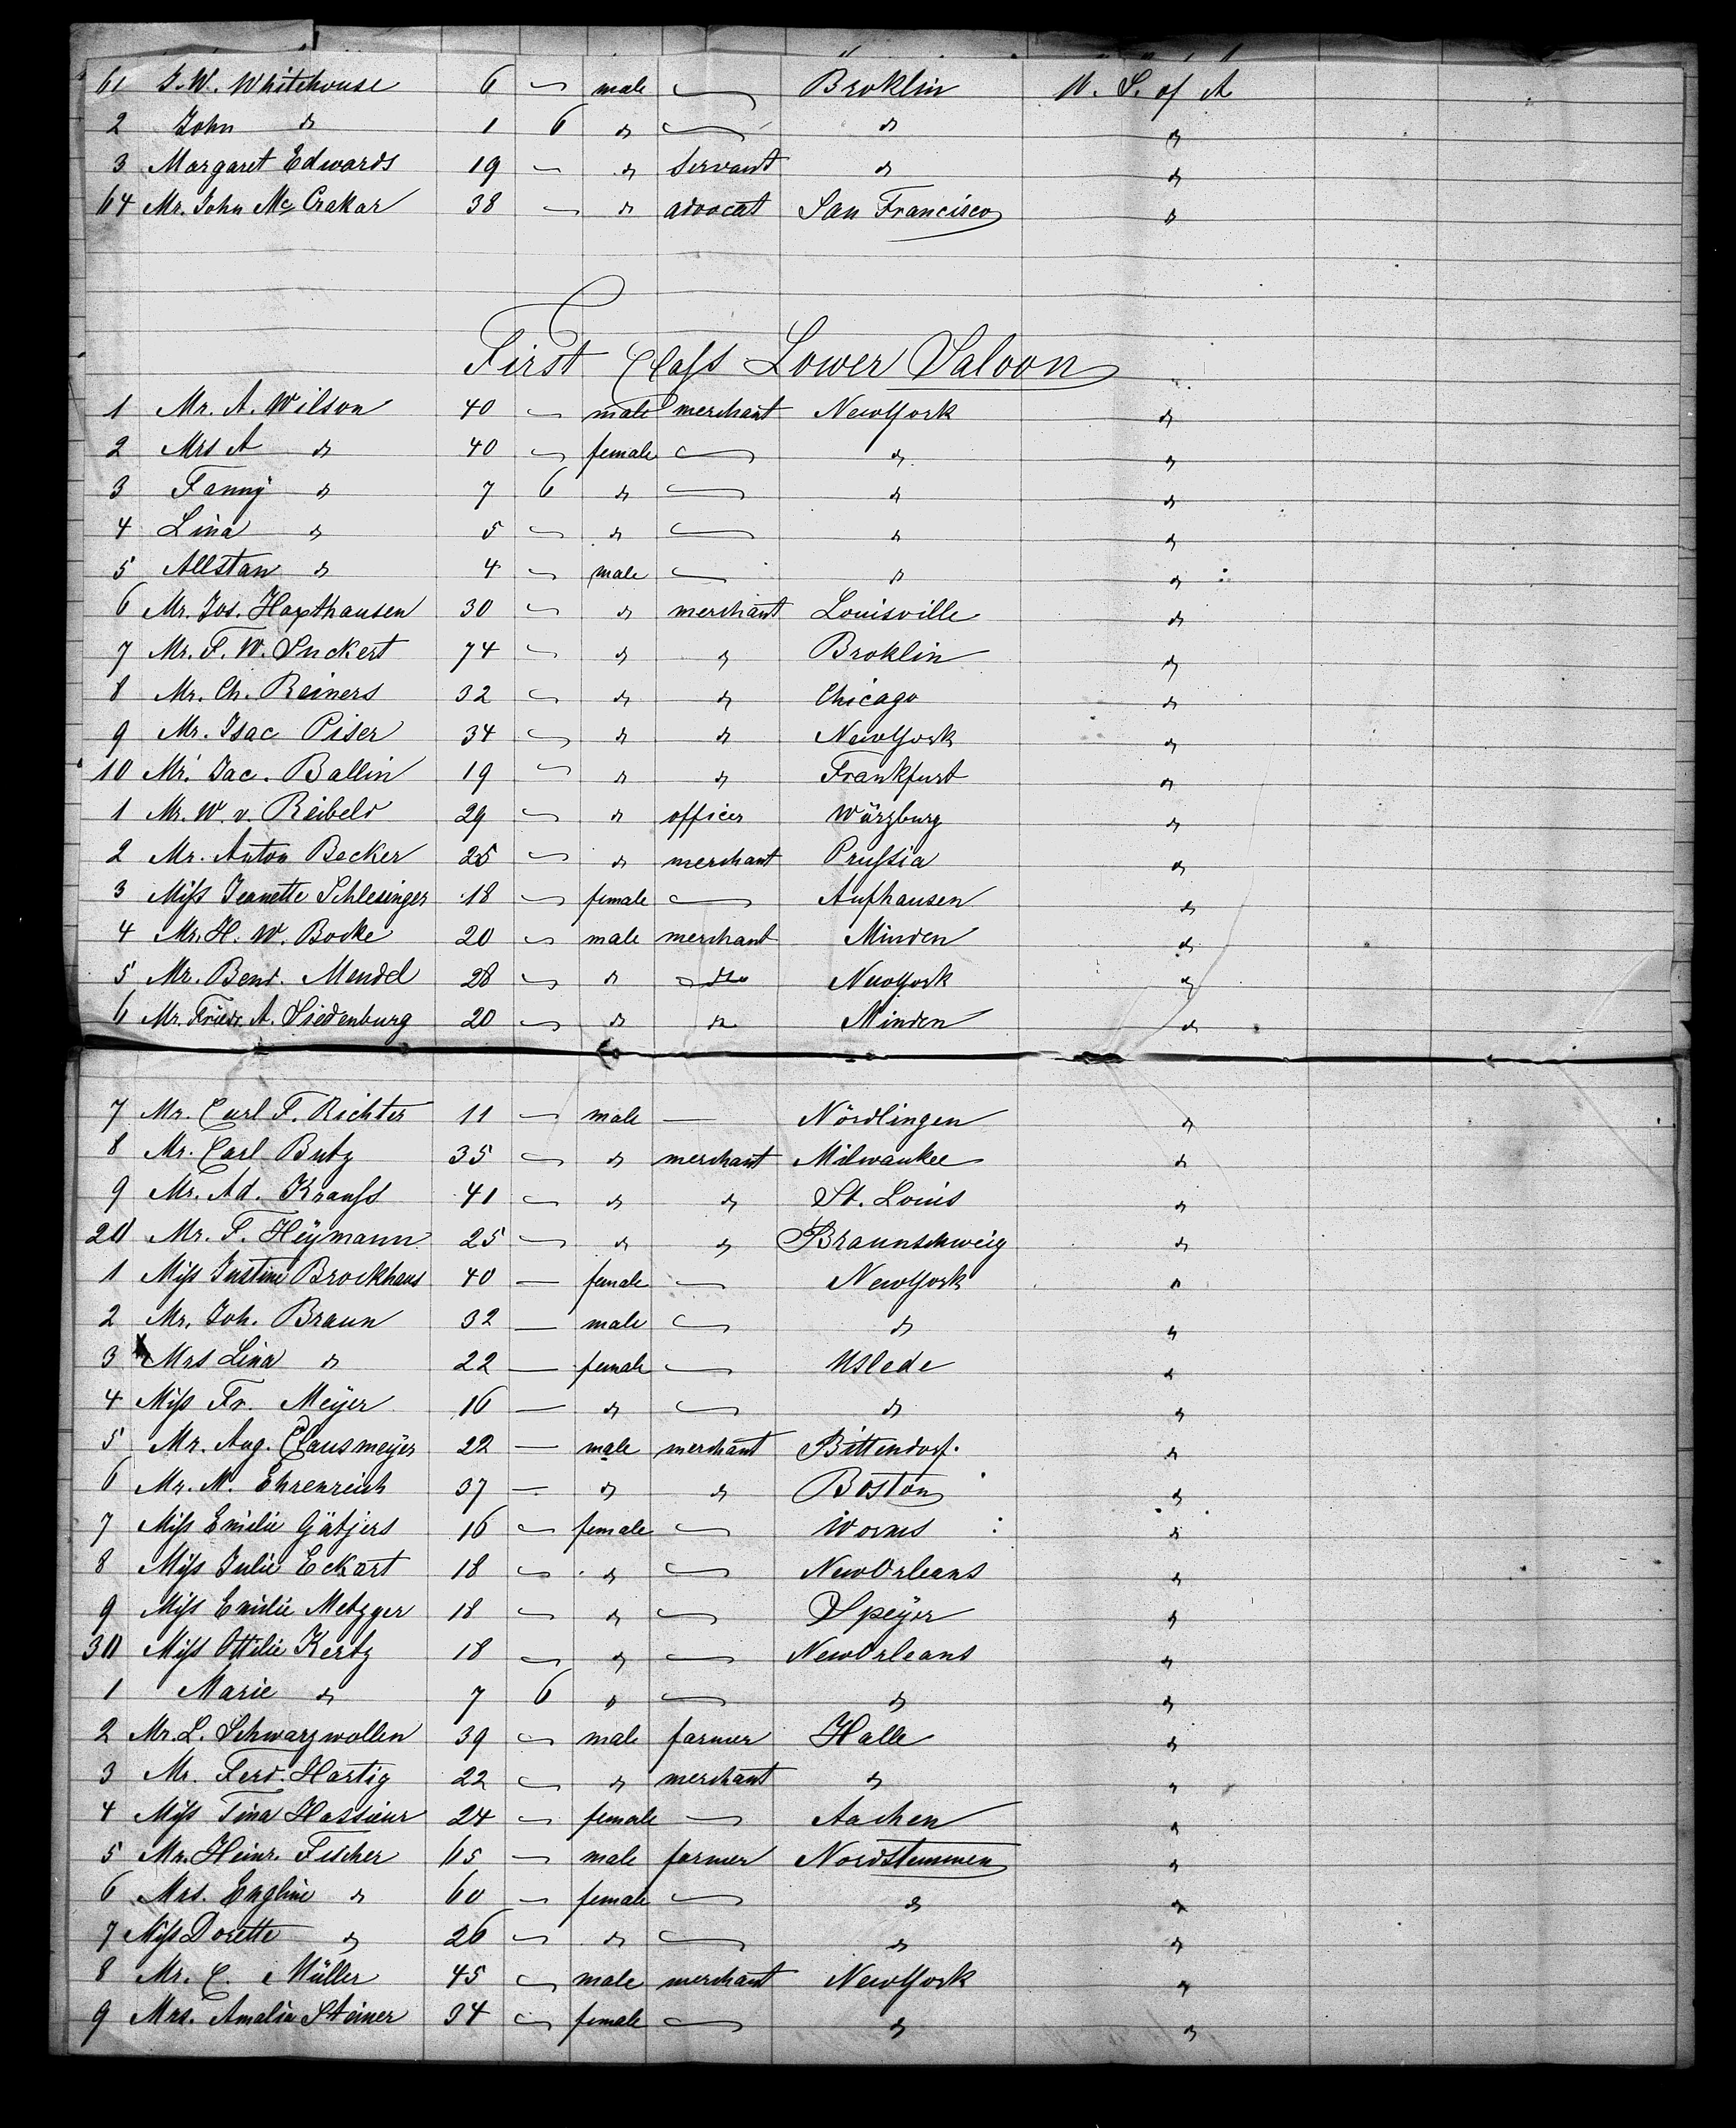 61 J. W. Whitehouse 6 — male — Broklin U. S. of A
2 John do 1 6 do — do do
3 Margaret Edwards 19 — do servant do do
64 Mr. John Mc Crakar 38 — do advocat San Francisco do
First Class Lower Saloon
1 Mr. A. Wilson 40 — male merchant NewYork do
2 Mrs A do 40 — female — do do
3 Fanny do 7 6 do — do do
4 Lina do 5 — do — do do
5 Allstan do 4 — male — do do
6 Mr. Jos. Haxthausen 30 — do merchant Louisville do
7 Mr. F. W. Suckert 74 — do do Broklin do
8 Mr. Ch. Reiners 32 — do do Chicago do
9 Mr. Isac Piser 34 — do do NewYork do
10 Mr. Jac. Ballin 19 — do do Frankfurt do
1 Mr. W. v. Reibeld 29 — do officer Würzburg do
2 Mr. Anton Becker 25 — do merchant Prussia do
3 Miss Jeanette Schlesinger 18 — female — Aufhausen do
4 Mr. H. W. Bocke 20 — male merchant Minden do
5 Mr. Bend. Mendel 28 — do do NewYork do
6 Mr. Friedr. A. Siedenburg 20 — do do Minden do
7 Mr. Carl F. Richter 11 — male — Nördlingen do
8 Mr. Carl Butz 35 — do merchant Milwaukee do
9 Mr. Ad. Krauss 41 — do do St. Louis do
20 Mr. F. Heÿmann 25 — do do Braunschweig do
1 Miss Justine Brockhaus 40 — female — NewYork do
2 Mr. Joh. Braun 32 — male — do do
3 Mrs Lina do 22 — female — Uslede do
4 Miss Fr. Meÿer 16 — do — do do
5 Mr. Aug. Clausmeÿer 22 — male merchant Bittendorf. do
6 Mr. M. Ehrenreich 37 — do do Boston do
7 Miss Emilie Gätjers 16 — female — Worms do
8 Miss Julie Eckart 18 — do — NewOrleans do
9 Miss Emilie Metzger 18 — do — Speÿer do
30 Miss Ottilie Kertz 18 — do — NewOrleans do
1 Marie do 7 6 do — do do
2 Mr. L. Schwarzwollen 39 — male farmer Halle do
3 Mr. Ferd. Hartig 22 — do merchant do do
4 Miss Tina Hassieur 24 — female — Aachen do
5 Mr. Heinr. Fischer 65 — male farmer Nordstemmen do
6 Mrs. Engline do 60 — female — do do
7 Miss Dorette do 26 — do — do do
8 Mr. C. Müller 45 — male merchant NewYork do
9 Mrs. Amalia Steiner 34 — female — do do